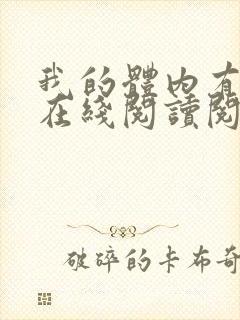 我的體內有
在綫閱讀閱
破碎的卡布奇